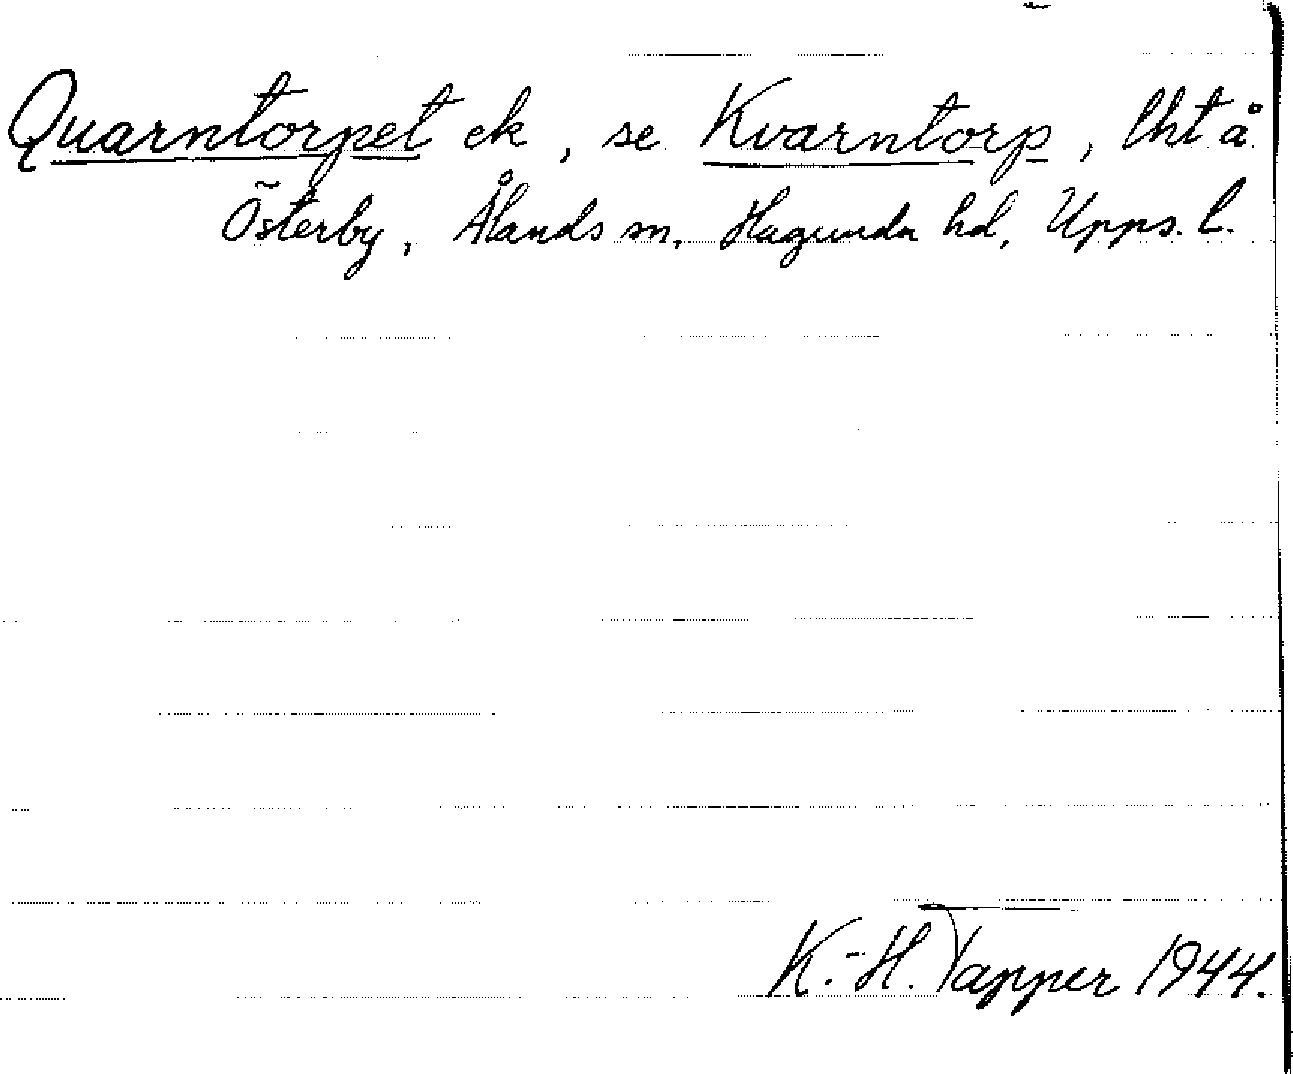 Quarntorpet ek, se Kvarntorp, lht å
Österby, Ålands sn, Hagunda hd, Upps. l.
K.-H. Tapper 1944.